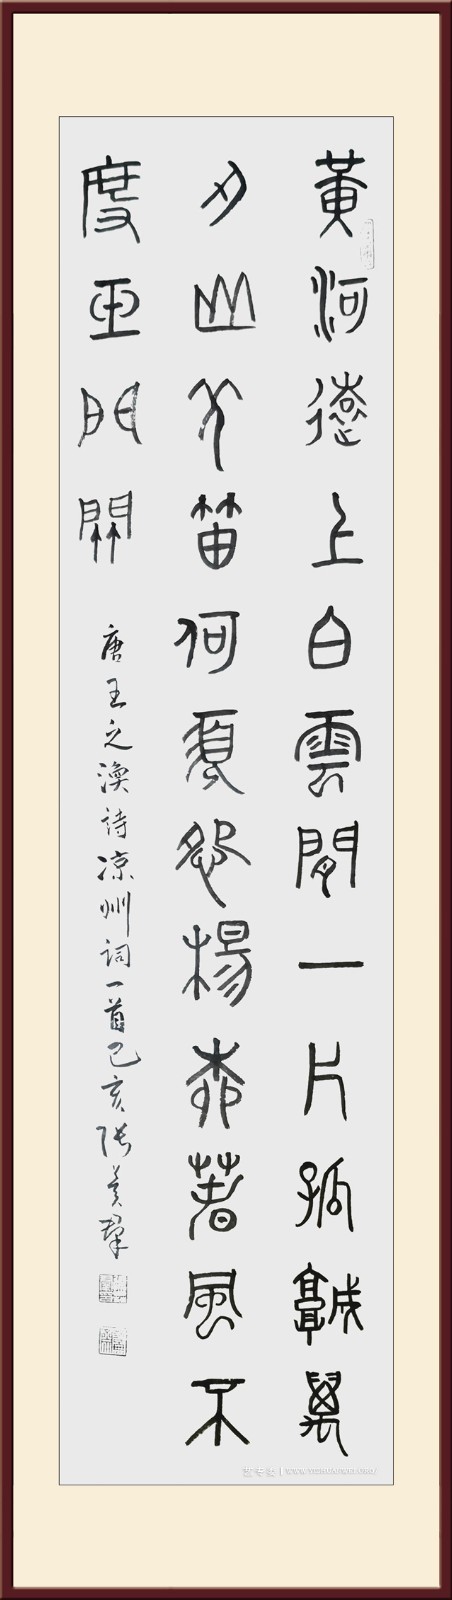 黃河遠上白雲間一片孤城萬
仞山羌笛何須怨楊柳春風不
度玉門關
唐王之渙詩凉州詞一首己亥張美群